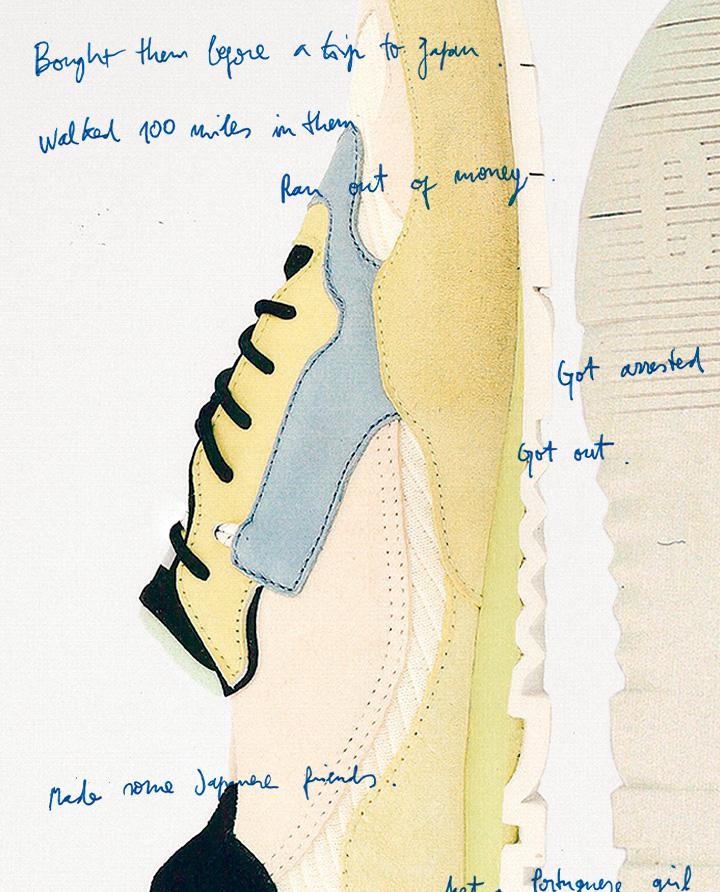 Bought them before a trip to Japan.
Walked 100 miles in them
Ran out of money.
Got arrested
Got out.
Made some Japanese friends.
Portuguese girl